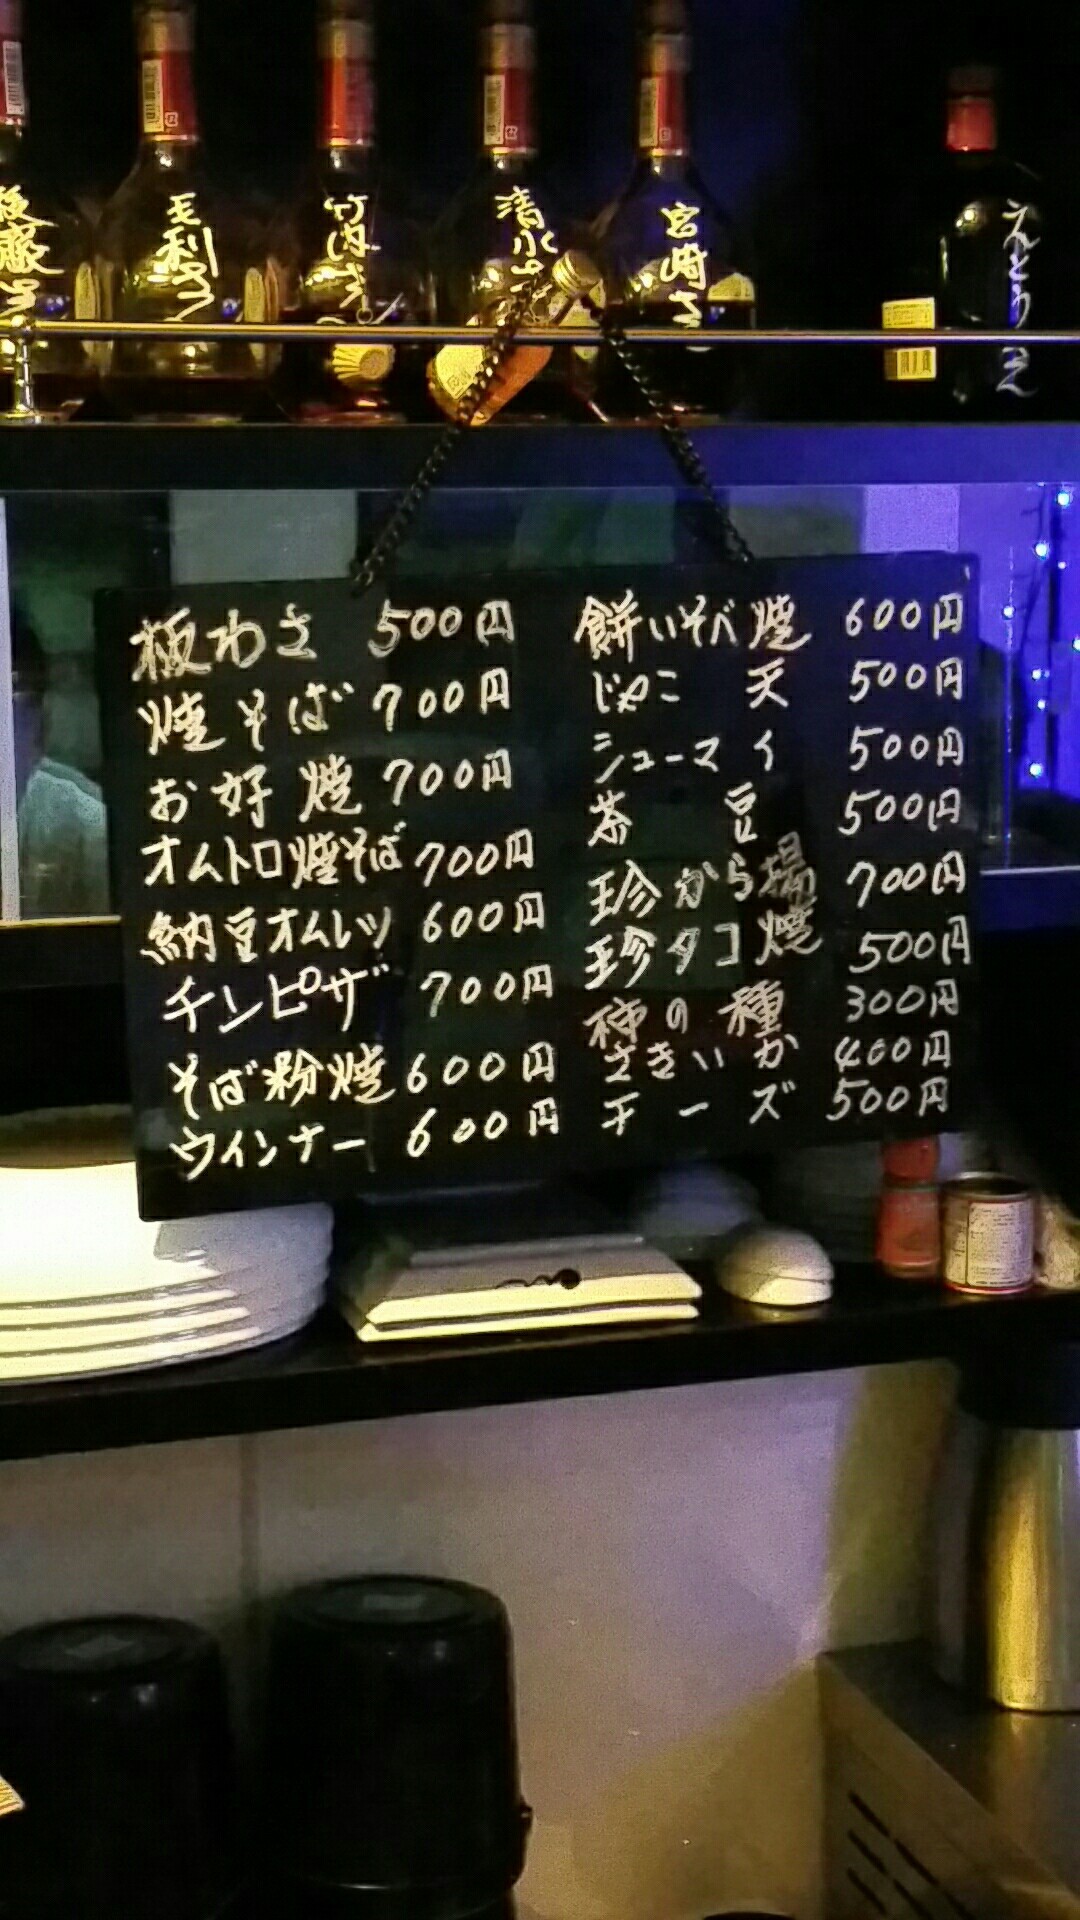 後藤
毛利さん
竹内さん
清水
宮崎さ
えんどうさん
板わさ 500円
焼そば 700円
お好焼 700円
オムトロ焼そば 700円
納豆オムレツ 600円
チンピザ 700円
そば粉焼 600円
ウインナー 600円
餅いそべ焼 600円
じゃこ天 500円
シューマイ 500円
茶豆 500円
珍から揚 700円
珍タコ焼 500円
柿の種 300円
さきいか 400円
チーズ 500円